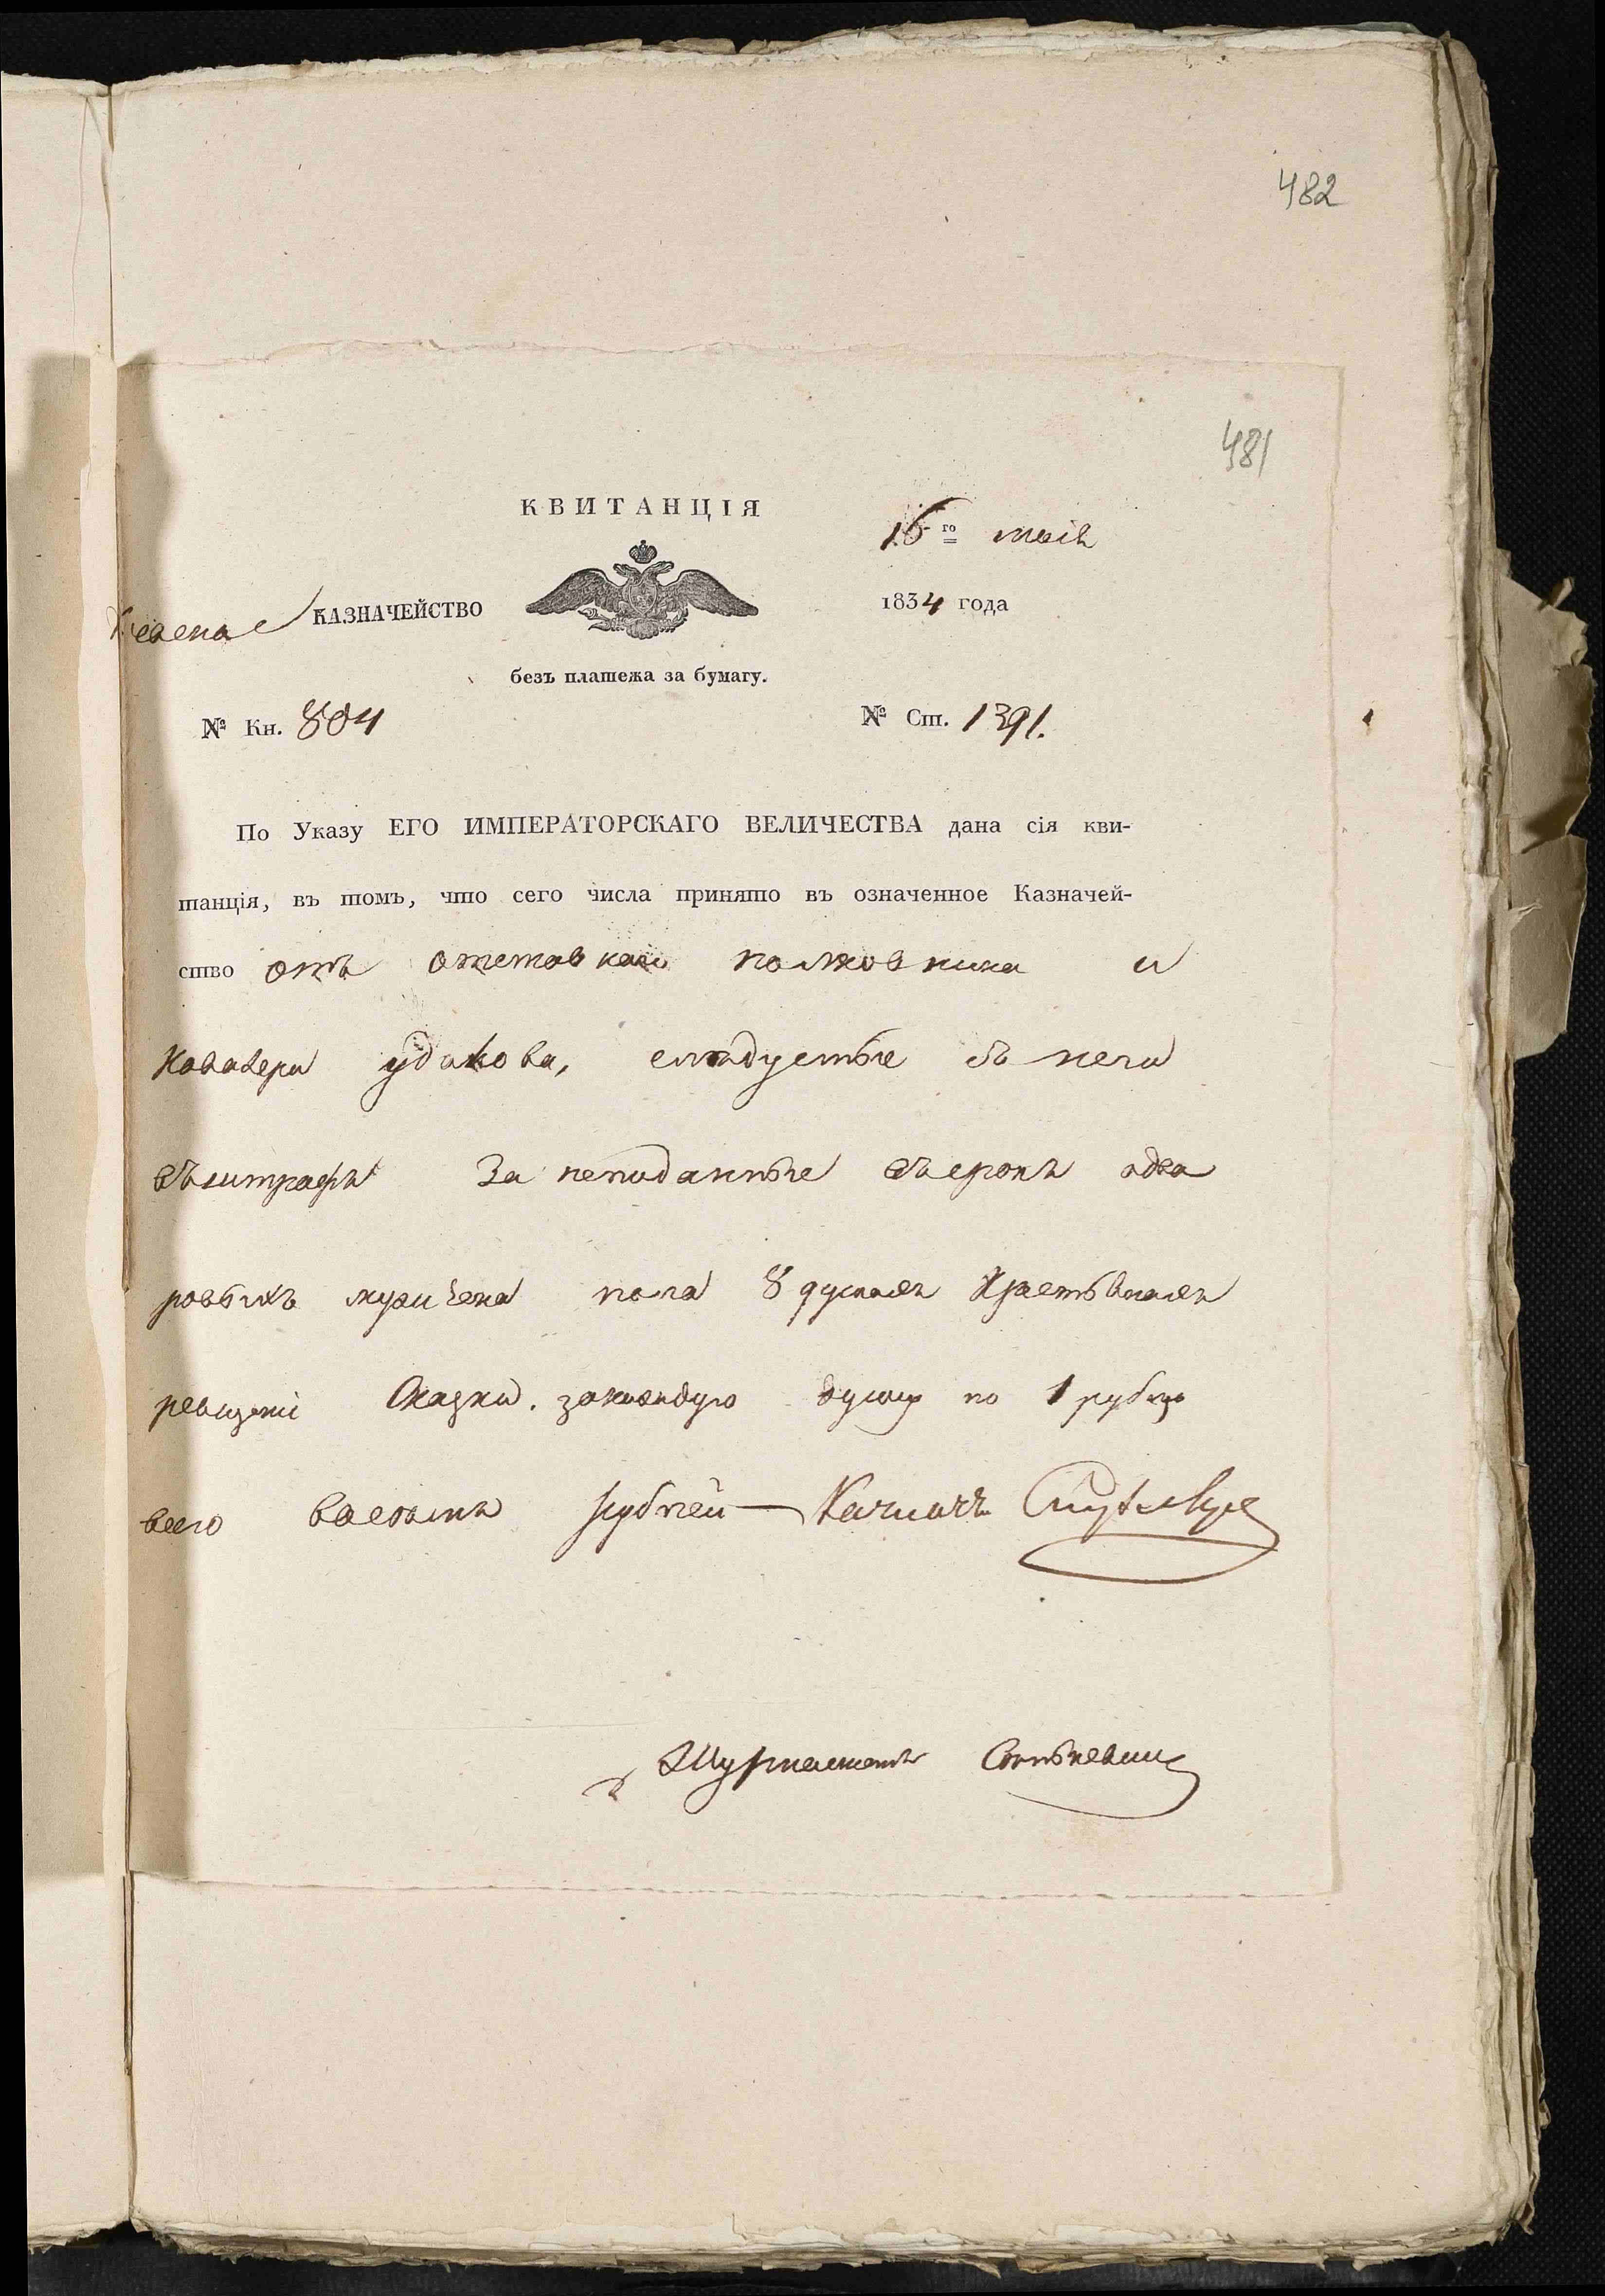 482
481
КВИТАНЦІЯ
16го маія
КАЗНАЧЕЙСТВО
1834 года
безъ платежа за бумагу.
№ Кн. 804
№ Ст. 1391.
По Указу ЕГО ИМПЕРАТОРСКАГО ВЕЛИЧЕСТВА дана сія кви-
танція, въ томъ, что сего числа принято въ означенное Казначей-
ство отъ отставнаго полковника и
Кавалера удакова, следуемые съ него
въштрафъ За неподанные въсрокъ одво
ровыхъ мужиска пола 8 душахъ Крестьянахъ
ревизскіе Скаски. закаждую душу по 1 рублю
всего восемь рублей — Казнач.
Сотневши